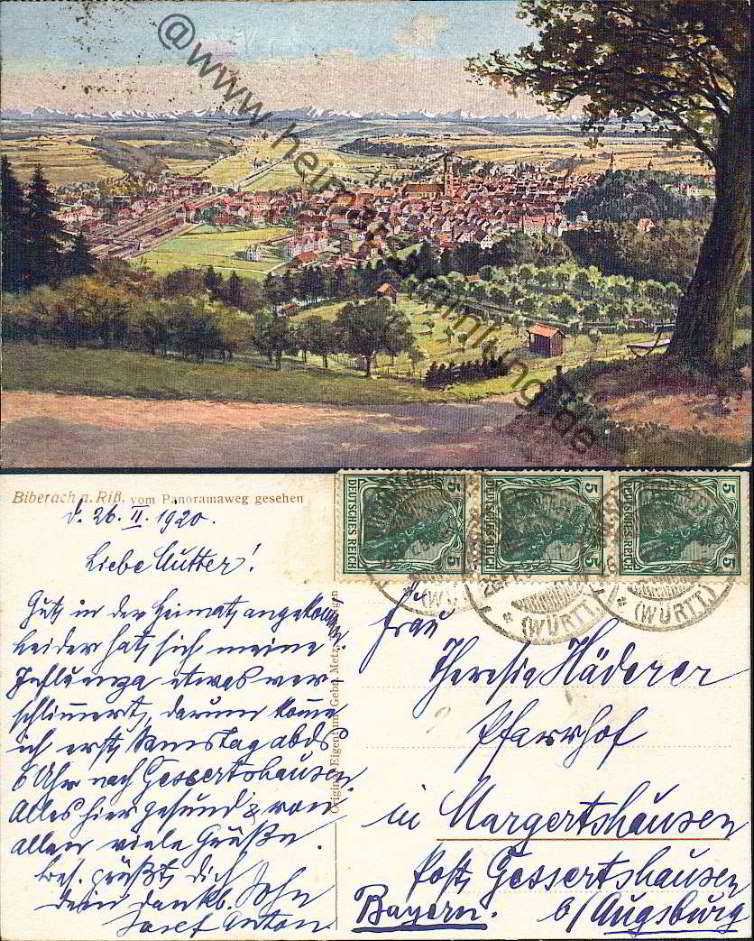 @www.heimatsammlung.de
Biberach a. Riß. vom Panoramaweg gesehen
d. 26. II. 1920.
Liebe Mutter!
Gut in der Heimat angekommen.
Leider hat sich meine
Influenza etwas ver-
schlimmert, darum komme
ich erst Samstag abds
6 Uhr nach Gessertshausen.
Alles hier gesund & von
allen viele Grüße.
Bes. grüßt dich
dein dankb. Sohn
Josef Anton.
Original Eigentum Gebr. Metz,
5 DEUTSCHES REICH 5
5 DEUTSCHES REICH 5
5 DEUTSCHES REICH 5
(WÜRTT.)
(WÜRTT.)
Frau
Theresia Häderer
Pfarrhof
in Margertshausen
Post Gessertshausen
Bayern. b/Augsburg